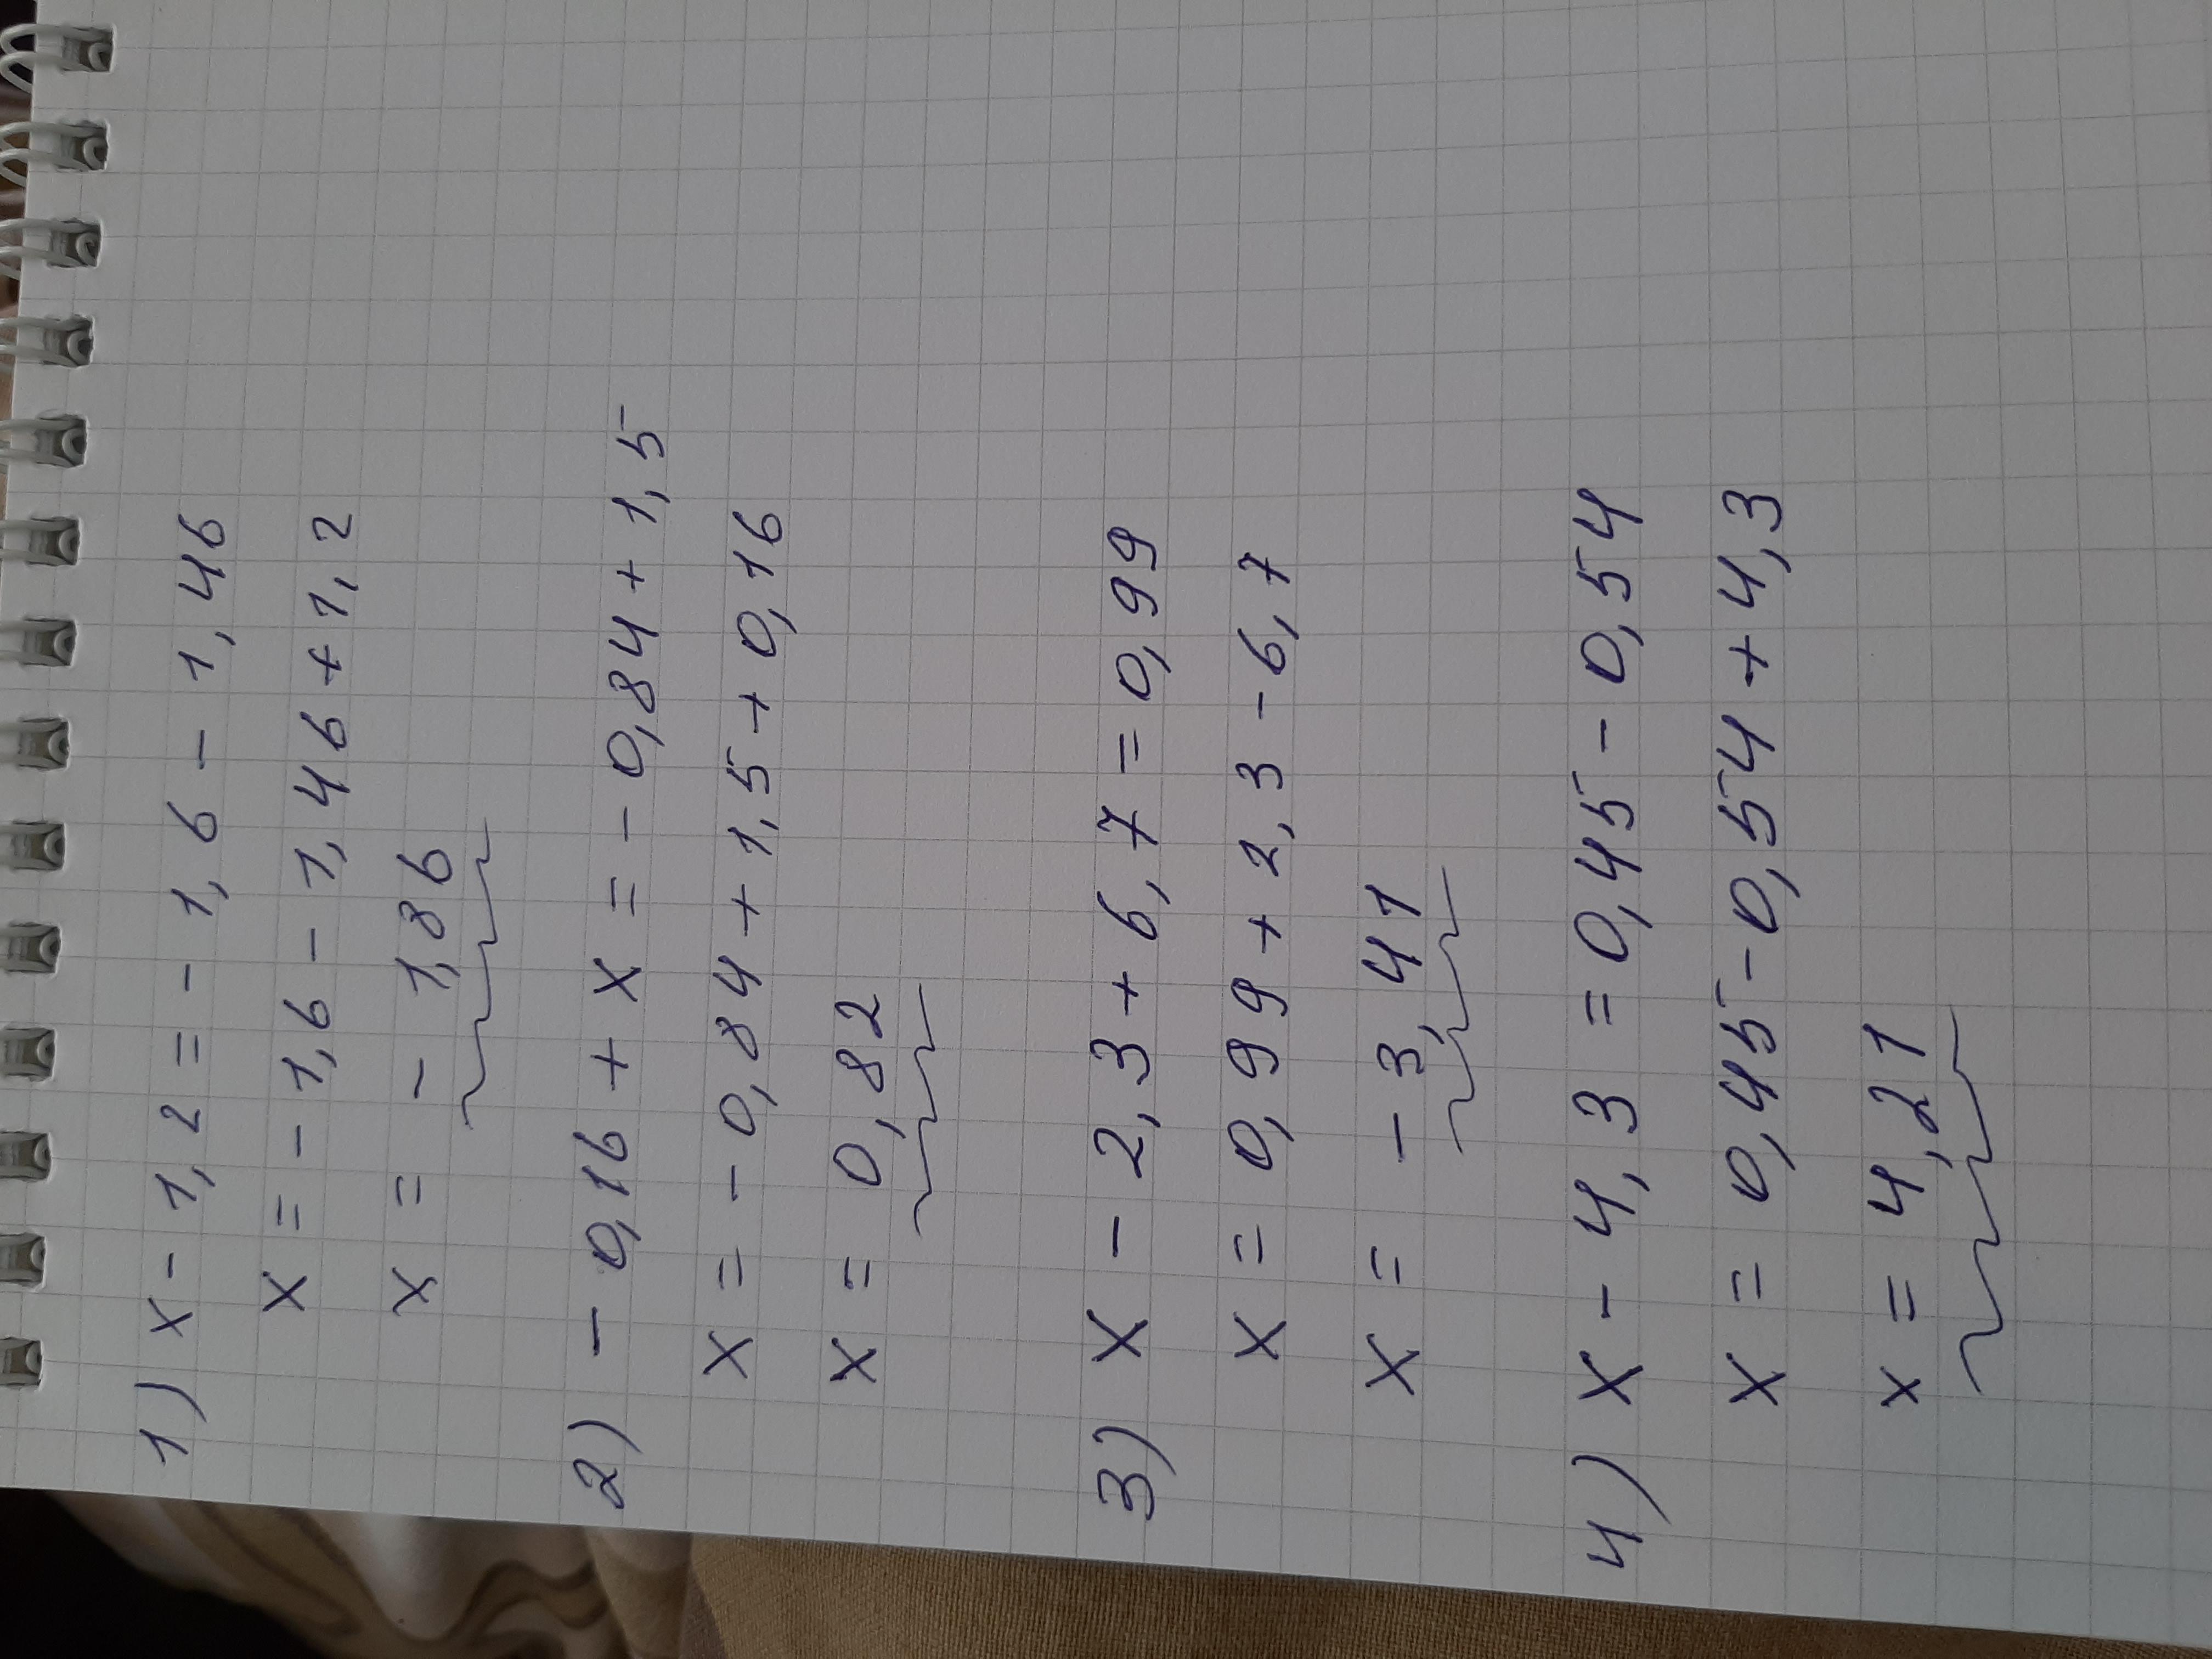 1) x - 1,2 = - 1,6 - 1,46
x = - 1,6 - 1,46 + 1,2
x = - 1,86
2) - 0,16 + x = - 0,84 + 1,5
x = - 0,84 + 1,5 + 0,16
x = 0,82
3) x - 2,3 + 6,7 = 0,99
x = 0,99 + 2,3 - 6,7
x = - 3,41
4) x - 4,3 = 0,45 - 0,54
x = 0,45 - 0,54 + 4,3
x = 4,21